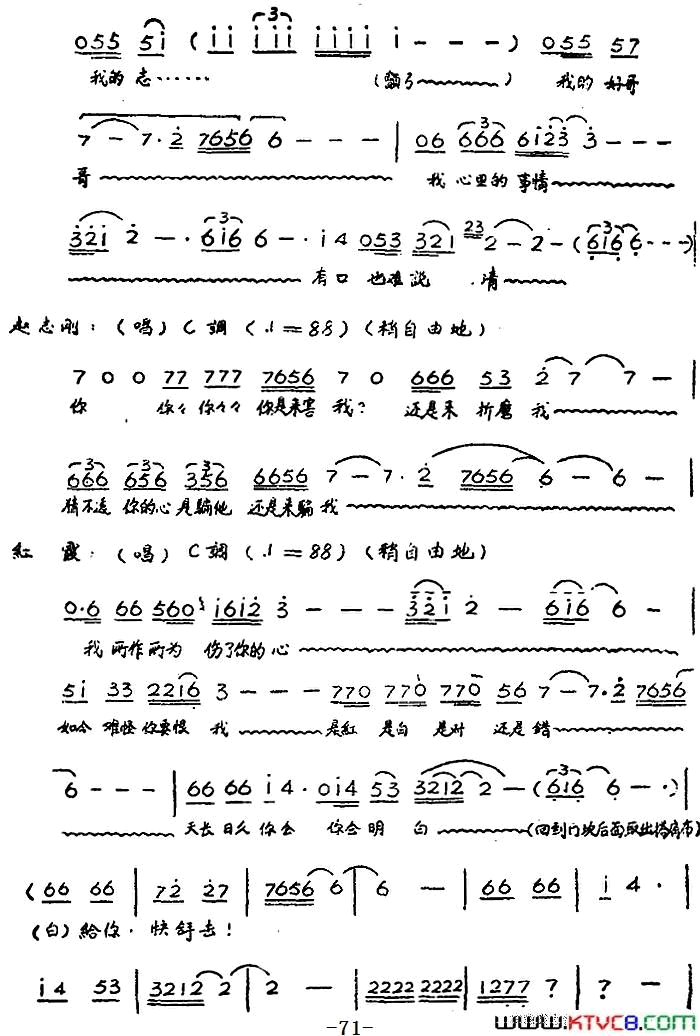 055 5i ( ii iii iiii i - - - ) 055 57
我的 志…… ( ) 我的 好哥
7 - 7· 2 7656 6 - - - | 06 666 6123 3 - - -
哥 我 心里的 事情
321 2 - - · 616 6 - · i4 053 321 23 2 - 2 - ( 6166 - - · )
有口 也难说 清
赵志刚:(唱)C调(♩=88)(稍自由地)
7 0 0 77 777 7656 7 0 666 53 2 7 7 - |
你 你々 你々々 你是来害 我? 还是来 折磨 我
666 656 356 6656 7 - 7· 2 7656 6 - 6 - |
猜不透 你的心 是骗他 还是来骗 我
红霞:(唱)C调(♩=88)(稍自由地)
0·6 66 560 i6i2 3 - - - 321 2 - 6i6 6 - |
我 所作 所为 伤了你的 心
5i 33 22i6 3 - - - 770 770 770 56 7 - 7· 2 7656
如今 难怪 你要恨 我 是红 是白 是对 还是 错
6 - - - | 66 66 i 4· 0i4 53 3212 2 - ( 6i6 6 - · ) |
天长 日久 你会 你会明 白 (回到门块后面取出
( 66 66 | 72 27 | 7656 6 | 6 - | 66 66 | i 4· |
(白)给你·快锊去!
i4 53 | 3212 2 | 2 - | 2222 2222 | 1277 ? | ? - |
-71-
www.KTVC8.com